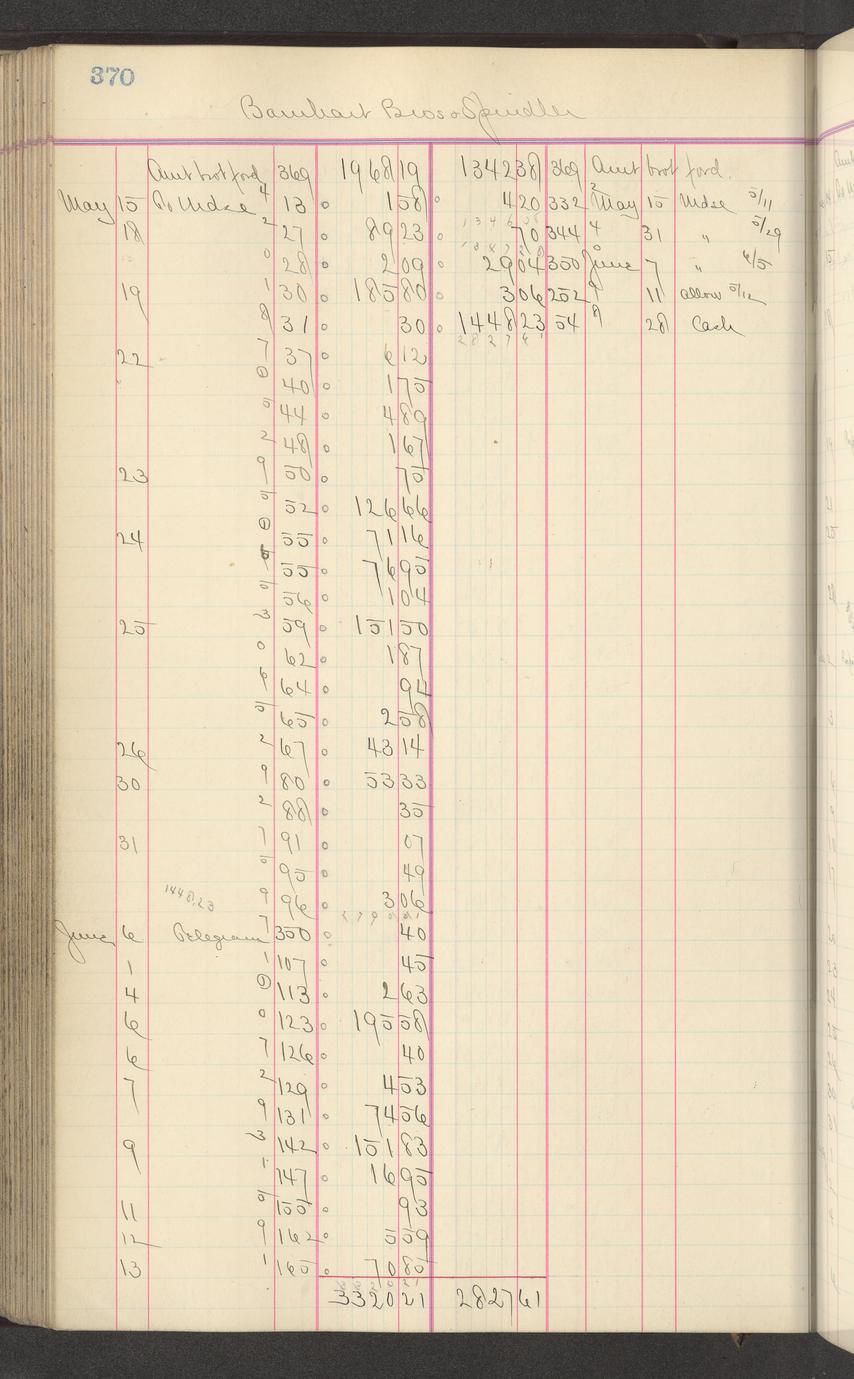 370
Barnhart Bros & Spindler
Amt brot ford 369 1968 19 1342 38 369 Amt brot ford.
May 15 To Mdse 4 13 1 58 4 20 332 2 May 15 Mdse 5/11
18 2 27 89 23 70 344 4 31 " 5/29
0 28 2 09 29 04 350 0 June 7 " 6/5
19 1 30 185 80 3 06 252 9 11 allow 5/12
8 31 30 1448 23 54 8 28 Cash
22 7 37 6 12 2827 61
0 40 1 75
5 44 4 89
2 48 1 67
23 9 50 75
5 52 126 66
24 0 55 71 16
55 76 95
5 56 1 04
25 3 59 151 50
0 62 1 87
6 64 94
5 65 2 58
26 2 67 43 14
30 9 80 53 33
2 88 35
31 7 91 07
5 95 49
1448.23 9 96 3 06
June 6 Telegram 7 350 40
1 1 107 45
4 0 113 2 63
6 0 123 195 58
6 7 126 40
7 2 129 4 53
9 131 74 56
9 3 142 151 83
1 147 16 95
11 5 155 93
12 9 162 5 59
13 1 165 70 85
3320 21 2827 61